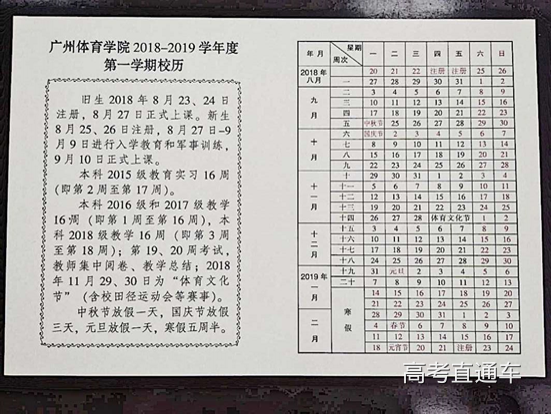 广州体育学院 2018–2019 学年度
第一学期校历
旧生 2018 年 8 月 23、24 日
注册，8 月 27 日正式上课。新生
8 月 25、26 日注册，8 月 27 日–9
月 9 日进行入学教育和军事训练，
9 月 10 日正式上课。
本科 2015 级教育实习 16 周
(即第 2 周至第 17 周)。
本科 2016 级和 2017 级教学
16 周 (即第 1 周至第 16 周)，本
科 2018 级教学 16 周 (即第 3 周
至第 18 周)；第 19、20 周考试，
教师集中阅卷、教学总结；2018
年 11 月 29、30 日为“体育文化
节”(含校田径运动会等赛事)。
中秋节放假一天，国庆节放假
三天，元旦放假一天，寒假五周半。
年 月 周次 星期 一 二 三 四 五 六 日
2018 年 20 21 22 注册 注册 25 26
八 月 一 27 28 29 30 31 1 2
九 二 3 4 5 6 7 8 9
三 10 11 12 13 14 15 16
月 四 17 18 19 20 21 22 23
五 中秋节 25 26 27 28 29 30
十 六 国庆节 2 3 4 5 6 7
七 8 9 10 11 12 13 14
月 八 15 16 17 18 19 20 21
九 22 23 24 25 26 27 28
十 29 30 31 1 2 3 4
十 十一 5 6 7 8 9 10 11
一 十二 12 13 14 15 16 17 18
月 十三 19 20 21 22 23 24 25
十四 26 27 28 体育文化节 1 2
十 十五 3 4 5 6 7 8 9
二 十六 10 11 12 13 14 15 16
月 十七 17 18 19 20 21 22 23
十八 24 25 26 27 28 29 30
2019 年 十九 31 元旦 2 3 4 5 6
一 二十 7 8 9 10 11 12 13
月 14 15 16 17 18 19 20
21 22 23 24 25 26 27
寒 28 29 30 31 1 2 3
二 假 4 春节 6 7 8 9 10
月 11 12 13 14 15 16 17
18 元宵节 20 21 注册 23 24
高考直通车